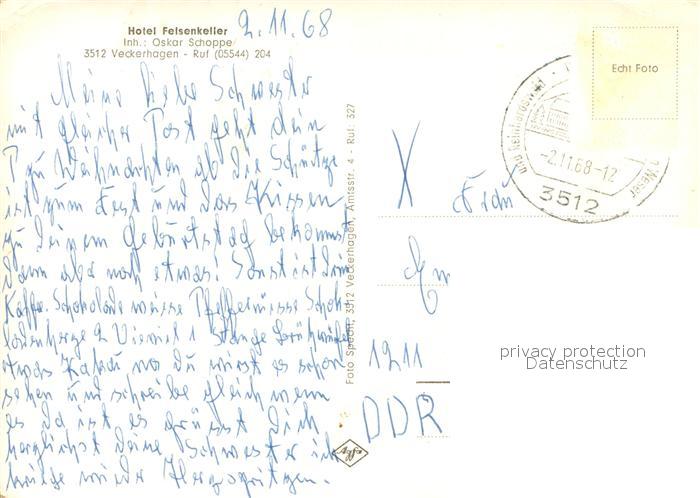 Hotel Felsenkeller
Inh.: Oskar Schoppe
3512 Veckerhagen - Ruf (05544) 204
2.11.68
Meine liebe Schwester
mit gleicher Post geht dein
P zu Weihnachten ab die Schürze
ist zum Fest und das Kissen
zu deinem Geburtstag bekommst
dann aber noch etwas! Sonst ist drin
Kaffe. Schokolade weisse Pfeffernüsse Schok
ladenherze 2 1 Stange
etwas Kakau na du wirst es schon
sehen und schreibe gleich wenn
es da ist es grüsst Dich
herzlichst deine Schwester ich
wieder
Foto Specht, 3512 Veckerhagen, Amtsstr. 4 - Ruf: 327
Agfa
Echt Foto
und Reinhardswald
-2.11.68-12
Weser
3512
X Frau
1211
DDR
privacy protection
Datenschutz